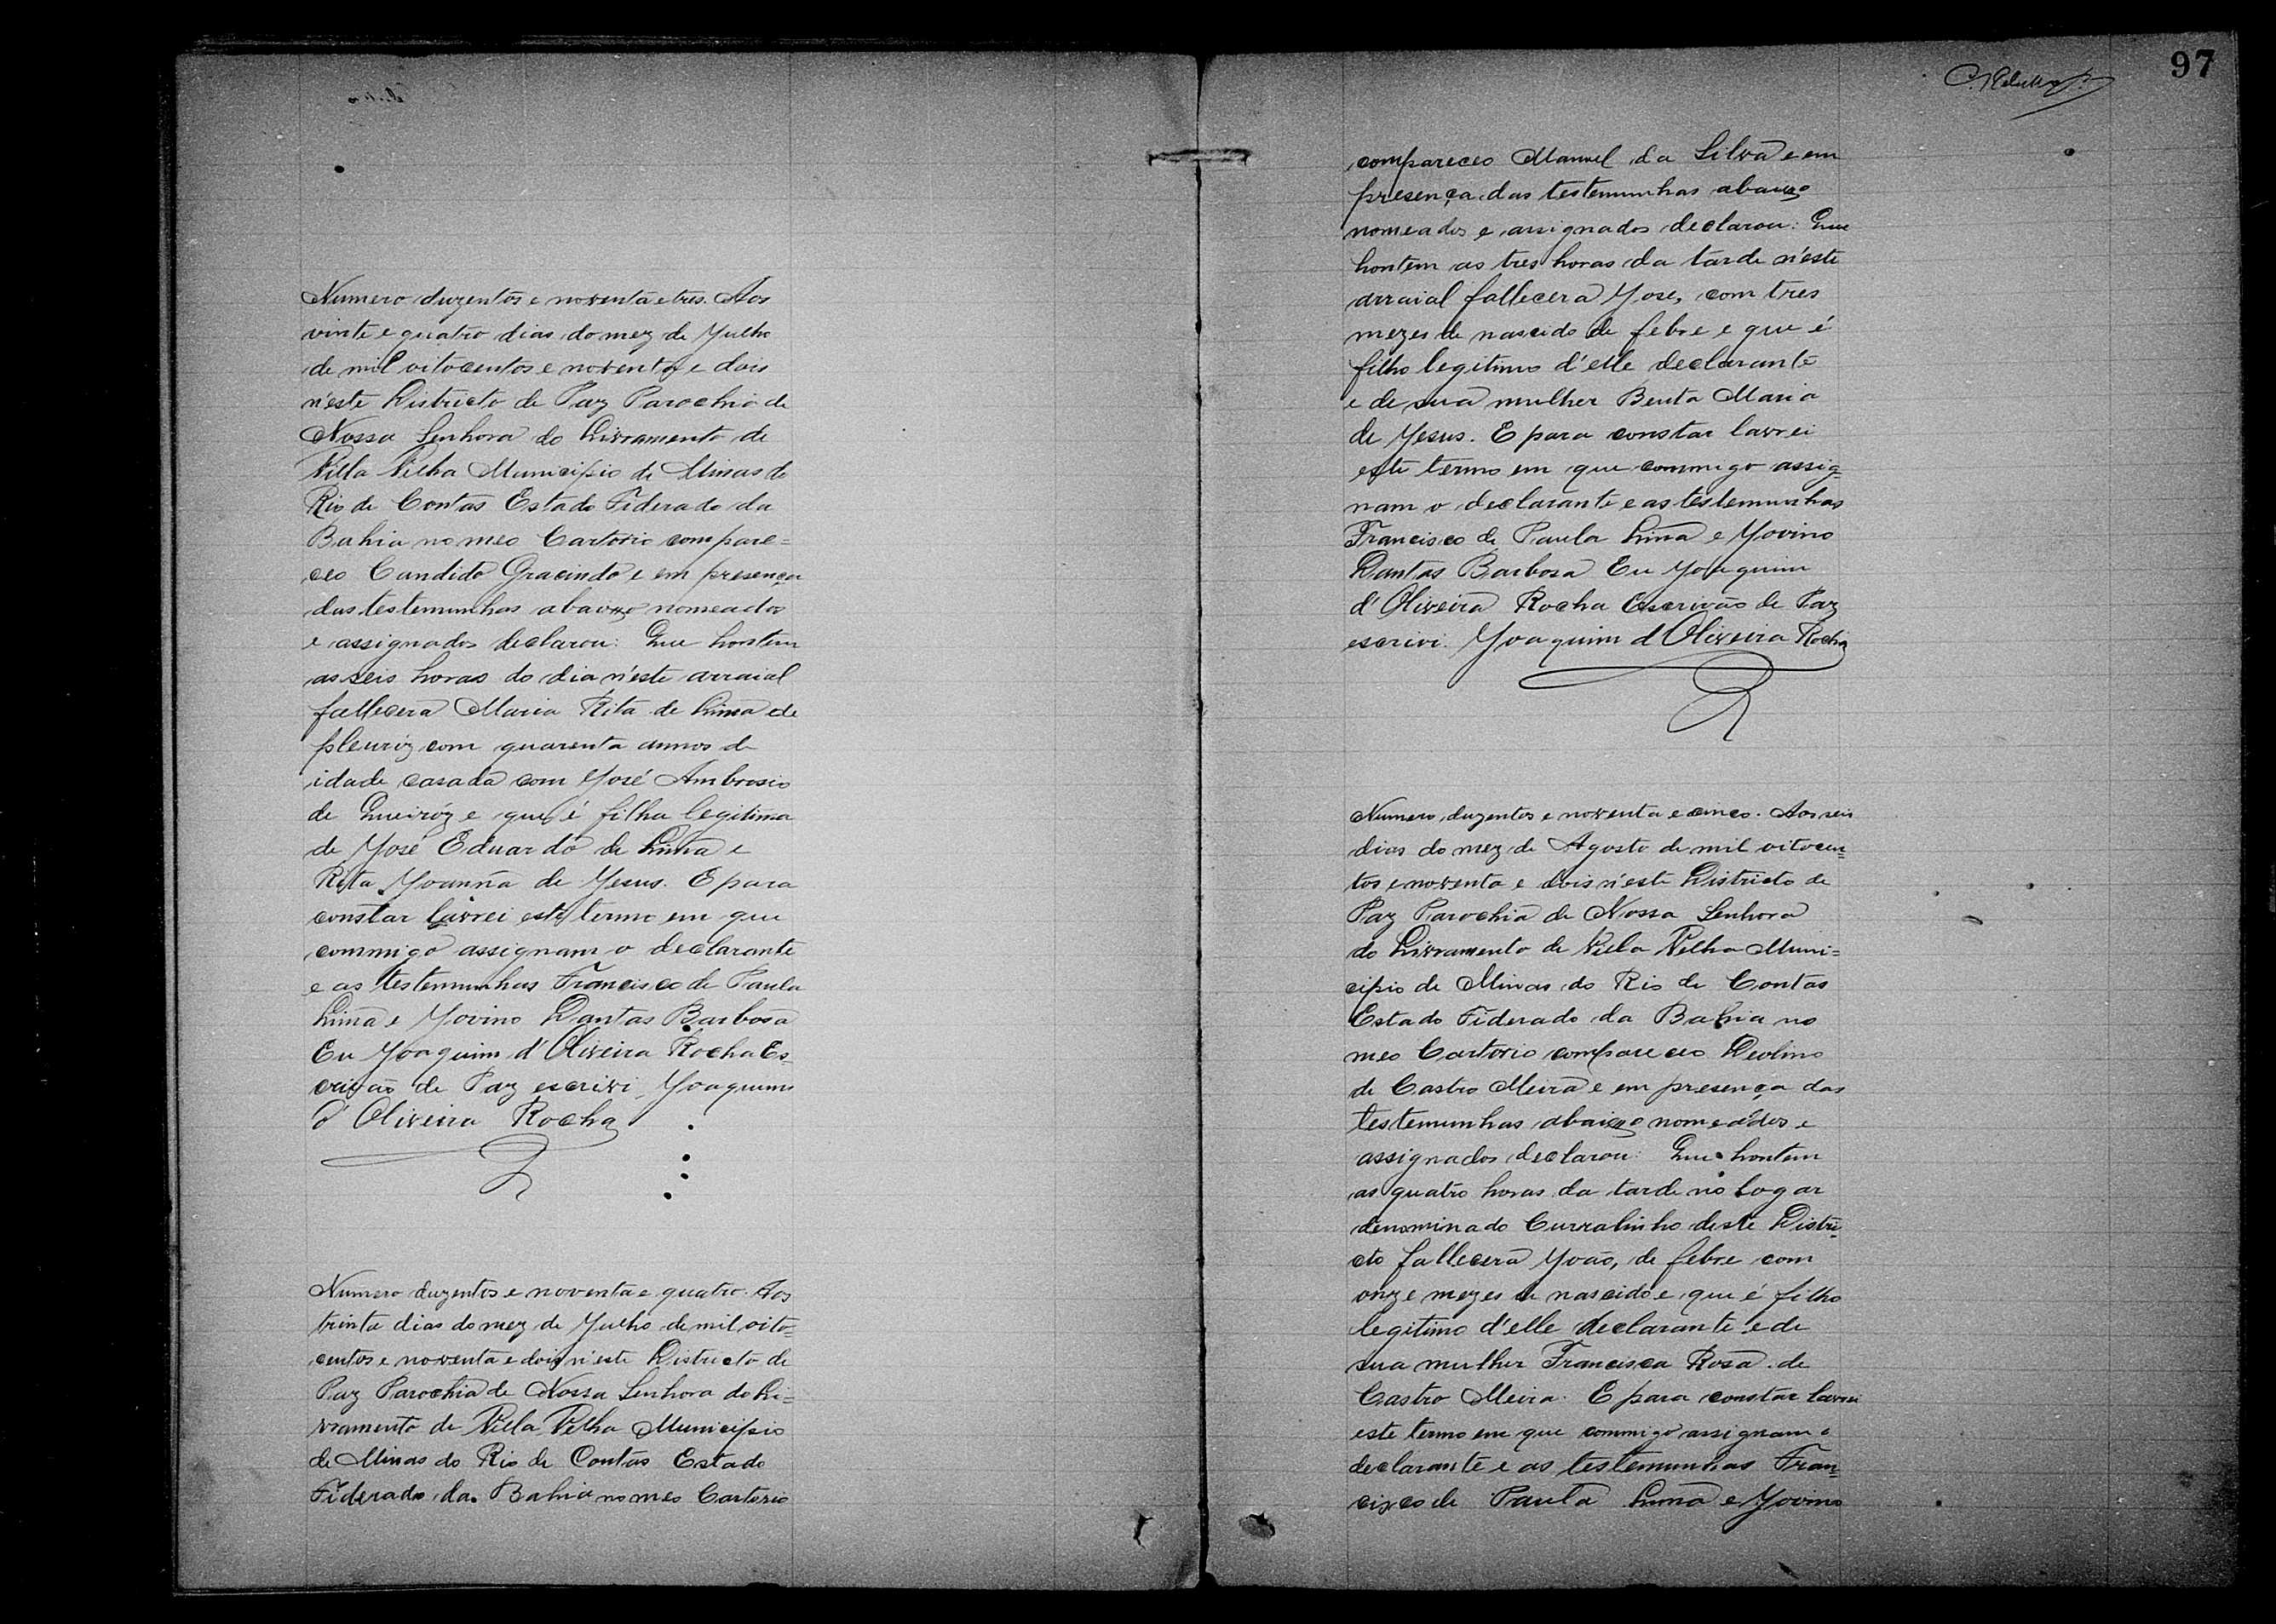 Numero duzentos e noventa e tres. Aos
vinte e quatro dias do mez de Julho
de mil oitocentos e noventa e dois
n'este Districto de Paz Parochia de
Nossa Senhora do Livramento de
Villa Velha Municipio de Minas do
Rio de Contas Estado Fiderado da
Bahia no meo Cartorio compare=
ceo Candido Gracindo e em presença
das testemunhas abaixo nomeados
e assignados declarou: Que hontem
as seis horas do dia n'este arraial
fallecera Maria Rita de Lima de
pleuriz com quarenta annos de
idade casada com José Ambrosio
de Queiróz e que é filha legitima
de José Eduardo de Lima e
Rita Joanna de Jesus. E para
constar lavrei este termo em que
commigo assignam o declarante
e as testemunhas Francisco de Paula
Lima e Jovino Dantas Barbosa
Eu Joaquim d'Oliveira Rocha Es-
crivão de Paz escrivi. Joaquim
d'Oliveira Rocha
Numero duzentos e noventa e quatro. Aos
trinta dias do mez de Julho de mil oito=
centos e noventa e dois n'este Districto de
Paz Parochia de Nossa Senhora do Li=
vramento de Villa Velha Municipio
de Minas do Rio de Contas Estado
Fiderado da Bahia no meo Cartorio
97
compareceo Manuel da Silva e em
presença das testemunhas abaixo
nomeados e assignados declarou: Que
hontem as tres horas da tarde n'este
arraial fallecera Jose, com tres
mezes de nascido de febre e que é
filho legitimo d'elle declarante
e de sua mulher Benta Maria
de Jesus. E para constar lavrei
este termo em que commigo assig=
nam o declarante e as testemunhas
Francisco de Paula Lima e Jovino
Dantas Barbosa Eu Joaquim
d'Oliveira Rocha Escrivão de Paz
escrivi. Joaquim d'Oliveira Rocha
Numero duzentos e noventa e cinco. Aos seis
dias do mez de Agosto de mil oitocen=
tos e noventa e dois n'este Districto de
Paz Parochia de Nossa Senhora
do Livramento de Villa Velha Muni=
cipio de Minas do Rio de Contas
Estado Fiderado da Bahia no
meo Cartorio compareceo Deolino
de Castro Meira e em presença das
testemunhas abaixo nomeados e
assignados declarou: Que hontem
as quatro horas da tarde no logar
denominado Curralinho deste Distri-
cto fallecera João, de febre com
onze mezes de nascido e que é filho
legitimo d'elle declarante e de
sua mulher Francisca Rosa de
Castro Meira. E para constar lavrei
este termo em que commigo assignam o
declarante e as testemunhas Fran=
cisco de Paula Lima e Jovino